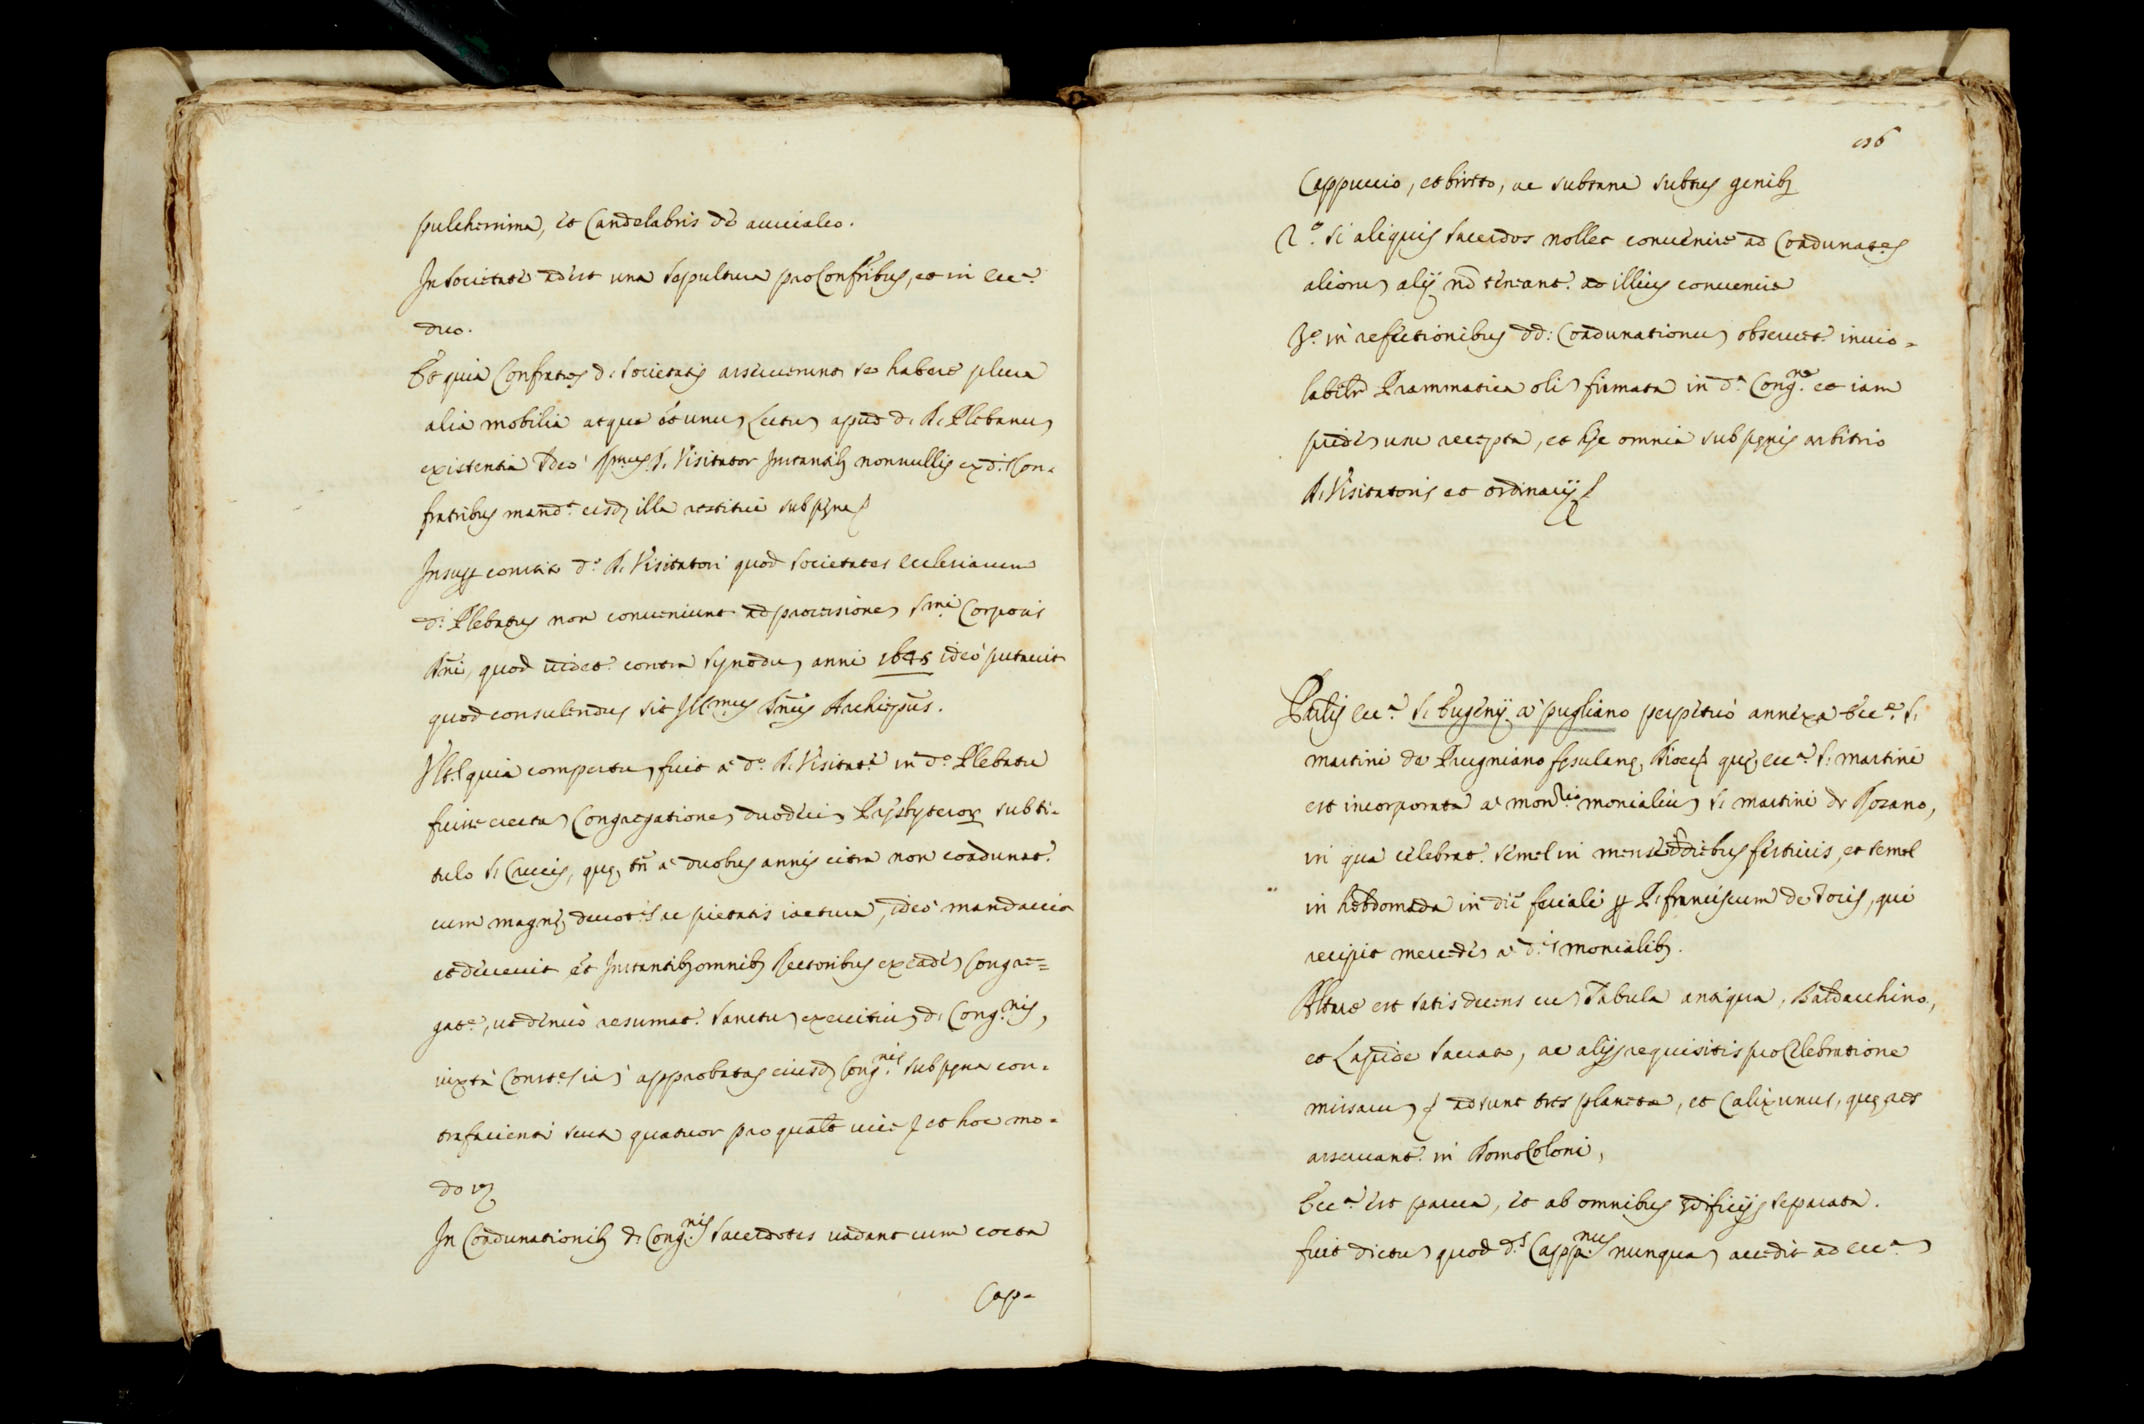 pulcherrima, et Candelabris de auricalco.
In societate adest una sepultura pro Confribus, et in ecc.ª
duo.
Et quia Confrates d. societatis asseruerunt se habere plura
alia mobilia atque et unu lectu apud d. R. Plebanu
existentia Ideo R. Visitator Instantib nonnullis ex d. Con-
fratribus mand.ᵗ eisd illa restitui sub pena
Insup constito d.º R. Visitatori quod societates ecclesiarum
d. Plebatus non conveniunt ad processione S.mi Corporis
Dni, quod videt. contra synodu anni 1645 ideo putavit
quod consulendus sit Ill.mus Dnus Archiepus.
Ult. quia compertu fuit a d.º R. Visitat.e in d.º Plebatu
fuisse erecta Congregatione duodeci Presbyteror sub ti-
tulo S. Crucis, que tn a duobus annis citra non coadunat.
cum magna devot.is ac pietatis iactura, ideo mandavit
et decrevit et Instantib omnib Rectoribus ex eade Congre=
gat.e, ut denuo resumat. sanctu exercitiu d. Cong.nis,
iuxta Const.es ia approbatas eiusd Cong.nis sub pena con-
trafacienti scuta quatuor pro qualt vice et hoc mo-
do vz
In Coadunationib d. Cong.nis Sacerdotes vadant cum cotta
Cap-
136
Cappuccio, et birrto, ac subtana subtus genib
2.º si aliquis sacerdos nollet convenire ad Coadunat.es
alioru alij nō teneant. ad illius convenire
3.º in refectionibus dd: Coadunationu observet. invio-
labilr Prammatica oli firmata in d.ª Cong.ne et iam
pride usu recepta, et hec omnia sub penis arbitrio
R. Visitatoris et ordinarij
ecc.ª S. Eugenij a pugliano perpetuo annexa Ecc.ª S.
martini de Prugniano fesulane Dioces que ecc.ª S. martini
est incorporata a mon.rio monialiu S. martini de
in qua celebrat. semel in mense diebus festivis, et semel
in hebdomada in die feriali p P. franciscum de Tocis, qui
recipit mercede a d.is monialib.
Altare est satis decens cu Tabula antiqua, Baldacchino,
et Lapide sacrato, ac alijs requisitis pro Celebratione
missaru adsunt tres planetae, et Calix unus, que res
asservant. in Domo Coloni,
Ecc.ª est parva, et ab omnibus edificijs separata.
fuit dictu quod d.s Cappa.nus nunqua accedit ad ecc.ª